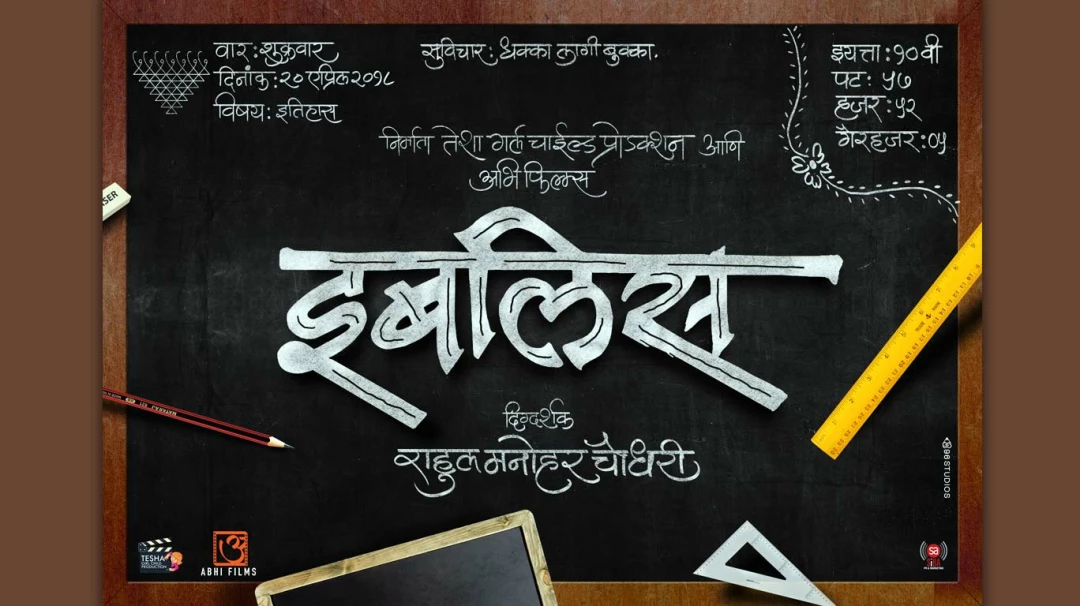 वार : शुक्रवार
दिनांक : २० एप्रिल २०१८
विषय : इतिहास
सुविचार : धक्का लागी बुक्का.
इयत्ता : १० वी
पट : ५७
हजर : ५२
गैरहजर : ०५
निर्माता तेशा गर्ल चाईल्ड प्रोडक्शन आणि
अभि फिल्म्स
SER
इबलिस
दिग्दर्शक
राहुल मनोहर चौधरी
96STUDIOS
TESHA
GIRL CHILD
PRODUCTION
ABHI FILMS
sa